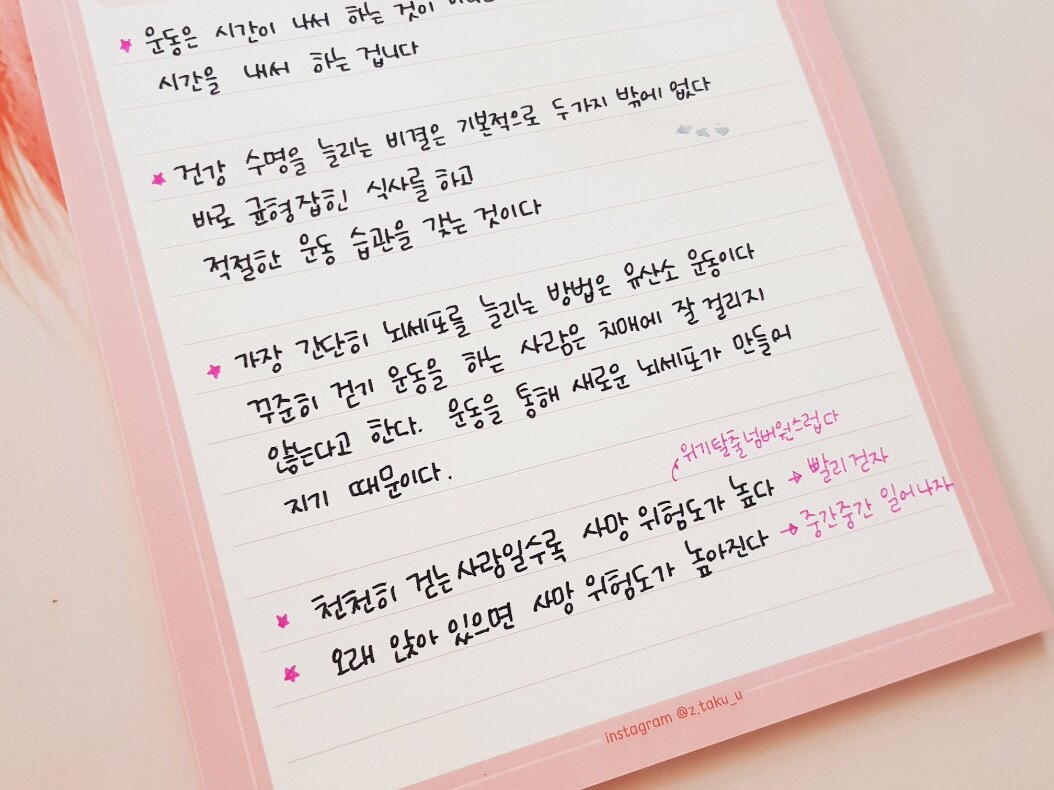 운동은 시간이 나서 하는 것이
시간을 내서 하는 겁니다
건강 수명을 늘리는 비결은 기본적으로 두가지 밖에 없다
바로 균형잡힌 식사를 하고
적절한 운동 습관을 갖는 것이다
가장 간단히 뇌세포를 늘리는 방법은 유산소 운동이다
꾸준히 걷기 운동을 하는 사람은 치매에 잘 걸리지
않는다고 한다. 운동을 통해 새로운 뇌세포가 만들어
지기 때문이다.
위기탈출넘버원스럽다
천천히 걷는 사람일수록 사망 위험도가 높다 → 빨리 걷자
오래 앉아 있으면 사망 위험도가 높아진다 → 중간중간 일어나자
instagram @z.taku_u